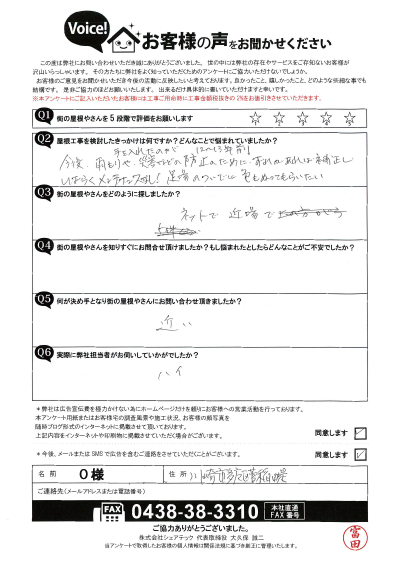 Voice!
お客様の声をお聞かせください
この度は弊社にお問い合わせいただき誠にありがとうございました。世の中には弊社の存在やサービスをご存知ないお客様が
沢山いらっしゃいます。その方たちに弊社をよく知っていただくためのアンケートにご協力いただけないでしょうか。
お客様のご意見をお聞かせいただき今後の活動に反映したいと考えております。良かったこと、嬉しかったこと、どのような些細な事でも
結構です。是非ご協力のほどお願いします。出来るだけ具体的に書いていただけますと幸いです。
※本アンケートにご記入いただいたお客様には工事ご用命時に工事金額税抜きの2%をお値引きさせていただきます。
Q1 街の屋根やさんを5段階で評価をお願いします
Q2 屋根工事を検討したきっかけは何ですか?どんなことで悩まれていましたか?
手を入れたのが
今後、雨もりや、
防止のために、
しばらくメンテナンス
足場のついでに色もぬってもらいたい
Q3 街の屋根やさんをどのように探しましたか?
ネットで 近場で
Q4 街の屋根やさんを知りすぐにお問合せ頂けましたか?もし悩まれたとしたらどんなことがご不安でしたか?
Q5 何が決め手となり街の屋根やさんにお問い合わせ頂きましたか?
近い
Q6 実際に弊社担当者がお伺いしていかがでしたか?
ハイ
*弊社は広告宣伝費を極力かけない為にホームページだけを頼りにお客様への営業活動を行っております。
本アンケート用紙またはお客様宅の調査風景や施工状況、お客様の顔写真を
随時ブログ形式のインターネットに掲載させて頂いております。
上記内容をインターネットや印刷物に掲載させていただく場合がございます。
同意します
*今後、メールまたはSMSで広告を含むご連絡させていただくことがございます。
同意します
名前 O様 住所 川崎市多摩区菅稲田堤
ご連絡先(メールアドレスまたは電話番号)
FAX 0438-38-3310 本社直通 FAX番号
ご協力ありがとうございました。
株式会社シェアテック 代表取締役 大久保 誠二
当アンケートで取得したお客様の個人情報は関係法規に基づき厳正に管理いたします。
富田